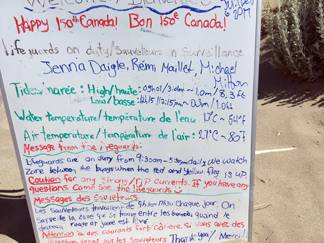 Welcome / Bienvenue
Happy 150th Canada! Bon 150e Canada!
Lifeguards on duty/Sauveteurs en surveillance
Jenna Daigle, Rémi Maillet, Michael
Tides/marée: High/haute:
Low/basse:
Water temperature/température de l'eau:
Air temperature/température de l'air: 27°C ~ 80°F
Message from the lifeguards:
Lifeguards are on duty from 9:30am-5:30pm daily. We watch
zone between the buoys when the red and yellow flag is up
Caution for any strong/rip currents. If you have any
questions come see the lifeguards
Messages des Sauveteurs
Les sauveteurs travaillent de 9h30 à 17h30 chaque jour. On
surveille la zone qui se trouve entre les bouées quand le
drapeau rouge et jaune est livré
Attention à des courants fort côtière. Si vous avez des
question venez voir les sauveteurs Thank you / Merci